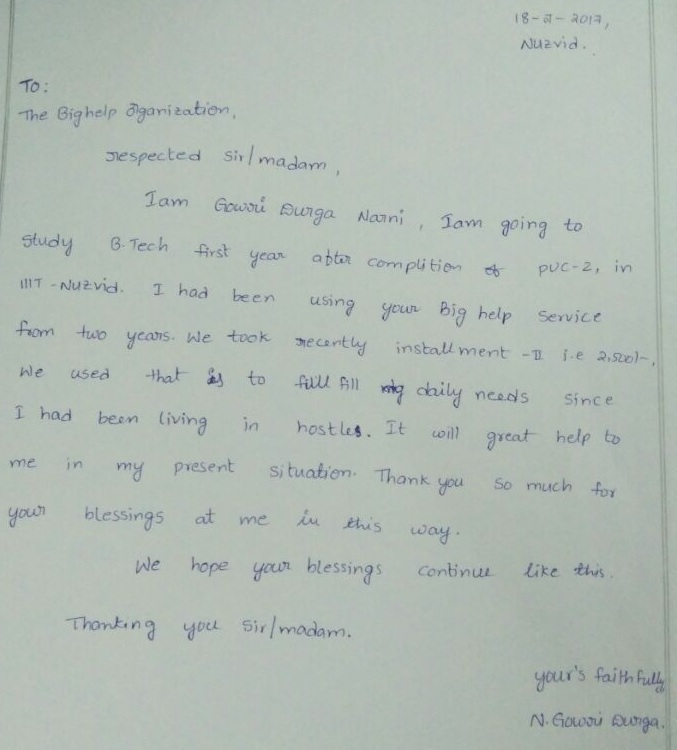 18-2-2017,
Nuzvid.
To:
The Bighelp Organization,
respected sir/madam,
Iam Gowri Durga Narni, Iam going to
study B.Tech first year after complition of PUC-2, in
IIIT-Nuzvid. I had been using your Big help service
from two years. We took recently installment -II i.e 2,500/-.
We used that is to full fill my daily needs since
I had been living in hostles. It will great help to
me in my present situation. Thank you so much for
your blessings at me in this way.
We hope your blessings continue like this.
Thanking you sir/madam.
your's faithfully
N. Gowri Durga.